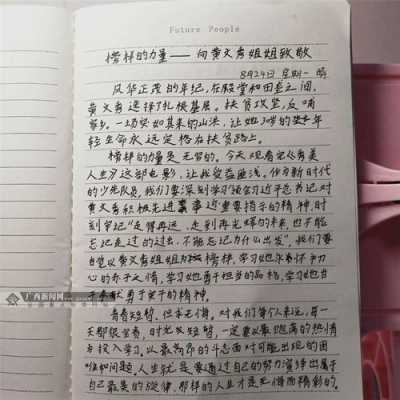 Future People
榜样的力量——向黄文秀姐姐致敬
8月24日 星期一 晴
风华正茂的年纪,在殿堂和田垄之间,
黄文秀选择了扎根基层,扶贫攻坚,反哺
家乡。一场突如其来的山洪,让她30岁的
年轻生命永远定格在扶贫路上。
榜样的力量是无穷的。今天观看完《秀美
人生》这部电影,让我受益匪浅,作为新时代
的少先队员,我们要深刻学习领会习近平总书记对
黄文秀积极先进事迹重要指示的精神,时
刻牢记"走得再远、走到再光辉的未来,也不能
忘记走过的过去,不能忘记为什么出发",我们要
自觉以黄文秀姐姐为榜样,学习她不忘怀初
心的赤子之情,学习她勇于担当的品格,学习她甘
于奉献勇于实干的精神。
青春短暂,但本无悔,对我们每个人来说,每一
天都很宝贵,时光如此短暂,一定要以饱满的热情
去投入学习,以最昂的斗志面对可能出现的困
难和问题。人生就是要通过自己的努力演绎出属于
自己最美的旋律,那样的人生才是无悔而精彩的。
广西新闻网